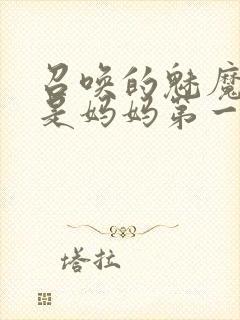 召唤的魅魔
是妈妈第一
塔拉